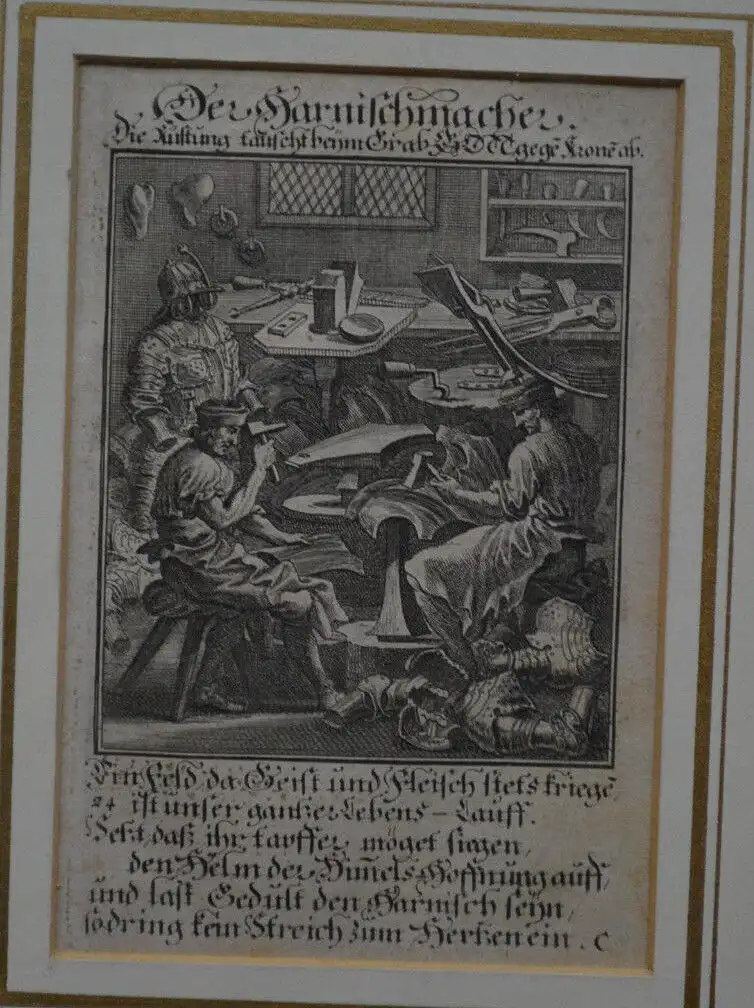 Der Harnischmacher.
Die Rüstung täuscht beÿm Grab, GOTT gegē Kronē ab.
Ein Feld da Geist und Fleisch stets kriegē,
24 ist unser gantzer Lebens-Lauff.
Setzt, daß ihr tapffer möget siegen,
den Helm der Him̄els Hoffnung auff,
und last Gedult den Harnisch seÿn,
so dring kein Streich zum Hertzen ein. C